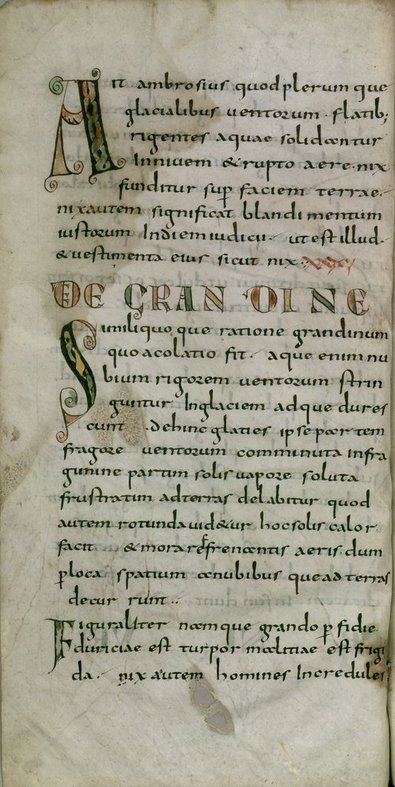 Ait ambrosius quodplerum que
glacialibus uentorum · flatib;
rigentes aquae solidantur
Inniuem & rupto aere · nix
funditur sup faciem terrae ·
nixautem significat blandimentum
iustorum Indiem iudicii · utestillud ·
& uestimenta eius sicut nix ·
DE GRANDINE
Similiquoque ratione grandinum
quoacolatio fit · aque enim nu
bium rigorem uentorum strin
guntur Inglaciem adque dures
cunt · dehinc glaties ipse partem
fragore uentorum comminuta infra
gunine partim solis uapore soluta
frustratim adterras delabitur quod
autem rotunda uid&ur hocsolis calor
facit & mora refrenantis aeris dum
p loca spatium anubibus quead terras
decur runt ··
Figuraliter namque grando p fidie
duriciae est turpor malitiae est frigi
da · nix autem homines Incredules